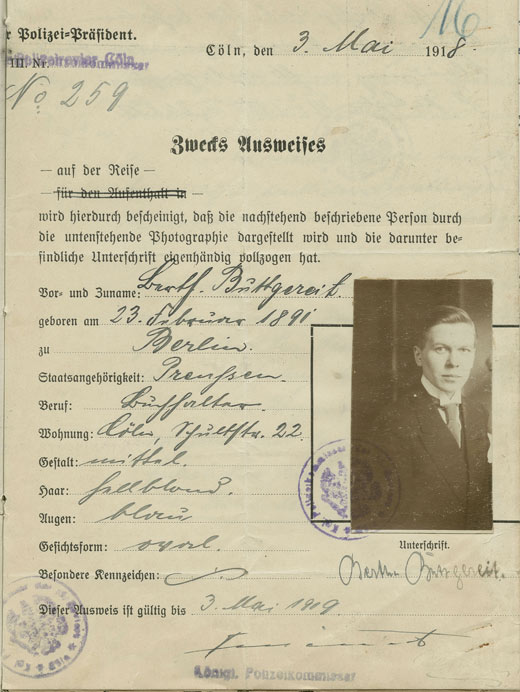 r Polizei=Präsident.
16
Cöln, den 3. Mai 1918
III Nr.
No 259
Zwecks Ausweises
— auf der Reise —
— für den Aufenthalt in —
wird hierdurch bescheinigt, daß die nachstehend beschriebene Person durch
die untenstehende Photographie dargestellt wird und die darunter be=
findliche Unterschrift eigenhändig vollzogen hat.
Vor= und Zuname: Berth. Buttgereit.
geboren am 23. Februar 1891
zu Berlin.
Staatsangehörigkeit: Preussen.
Beruf: Buchhalter.
Wohnung: Cöln, Schultstr. 22.
Gestalt: mittel.
Haar: hellblond.
Augen: blau
Gesichtsform: oval.
Unterschrift.
Besondere Kennzeichen:
Berthe Buttgereit.
Dieser Ausweis ist gültig bis 3. Mai 1919.
Königl. Polizeikommissar